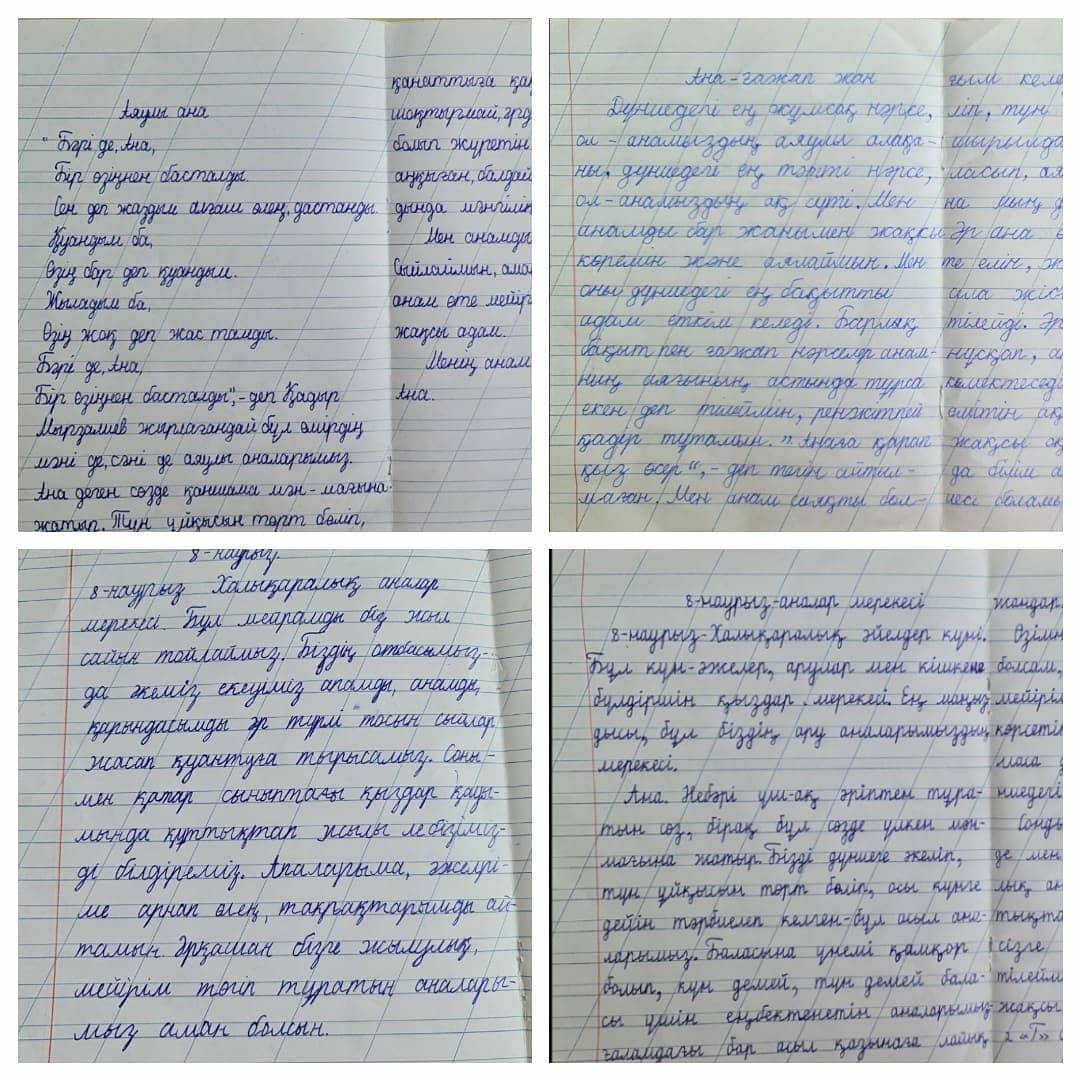 Аяулы ана
" Бәрі де, Ана,
Бір өзіңнен басталды.
Сен деп жаздым алғаш өлең, дастанды.
Қуандым ба,
Өзің бар деп қуандым.
Жыладым ба,
Өзің жоқ деп жас тамды.
Бәрі де, Ана,
Бір өзіңнен басталды",- деп Қадыр
Мырзалиев жырлағандай бұл өмірдің
мәні де, сәні де аяулы аналарымыз.
Ана деген сөзде қаншама мән-мағына
жатыр. Түн ұйқысын төрт бөліп,
қанаттыға қақ
шоқтырмай, әрд
болып жүретін
аңқыған, балдай
дында мәңгілік
Мен анамды
Сыйлаймын, ама
анам өте мейір
жақсы адам.
Менің анам
Ана.
Ана-ғажап жан
Дүниедегі ең жұмсақ нәрсе,
ол - анамыздың аяулы алақа-
ны, дүниедегі ең тәтті нәрсе,
ол-анамыздың ақ сүті. Мен
анамды бар жанымен жақсы
көремін және аялаймын. Мен
оны дүниедегі ең бақытты
адам еткім келеді. Барлық
бақыт пен ғажап нәрселр анам-
ның аяғының астында тұрса
екен деп тілеймін, ренжітпей
қадір тұтамын. "Анаға қарап
қыз өсер",- деп тегін айтыл-
маған. Мен анам сияқты бол-
ғым келе
ліп, түн
шырылда
ласып, ая
на мың д
Әр ана ө
те елін, ж
ала жіс
тілейді. Әр
нұсқап, а
көмектесед
еміттін ақ
жақсы оқ
да білім а
иесі боламы
8-наурыз.
8-наурыз Халықаралық аналар
мерекесі. Бұл мейрамды біз жыл
сайын тойлаймыз. Біздің отбасымыз-
да әкеміз екеуіміз апамды, анамды,
қарындасымды әр түрлі тосын сыйлар
жасап қуантуға тырысамыз. Соны-
мен қатар сыныптағы қыздар қауы-
мында құттықтап жылы лебізіміз-
ді білдіреміз. Апаларыма, әжелері-
ме арнап өлең, тақпақтарымды ай-
тамын. Әрқашан бізге жылулық,
мейірім төгіп тұратын аналары-
мыз аман болсын.
8-наурыз-аналар мерекесі
8-наурыз-Халықаралық әйелдер күні.
Бұл күн-әжелер, арулар мен кішкене
бүлдіршін қыздар мерекесі. Ең маңыз
дысы, бұл біздің ару аналарымыздың
мерекесі.
Ана. Небәрі үш-ақ әріптен тұра-
тын сөз, бірақ бұл сөзде үлкен мән-
мағына жатыр. Бізді дүниеге әкеліп,
түн ұйқысын төрт бөліп, осы күнге
дейін тәрбиелеп келген-бұл асыл ана-
ларымыз. Баласына үнемі қамқор
болып, күн демей, түн демей бала-
сы үшін еңбектенетін аналарымыз
ғаламдағы бар асыл қазынаға лайық
жандар.
Өзімн
болсам,
мейірім
көрсетіп
маға ұ
ниедегі
Сонды
де мен
лық, ан
тықта
сізге
тілейм
жақсы
2 «Г»